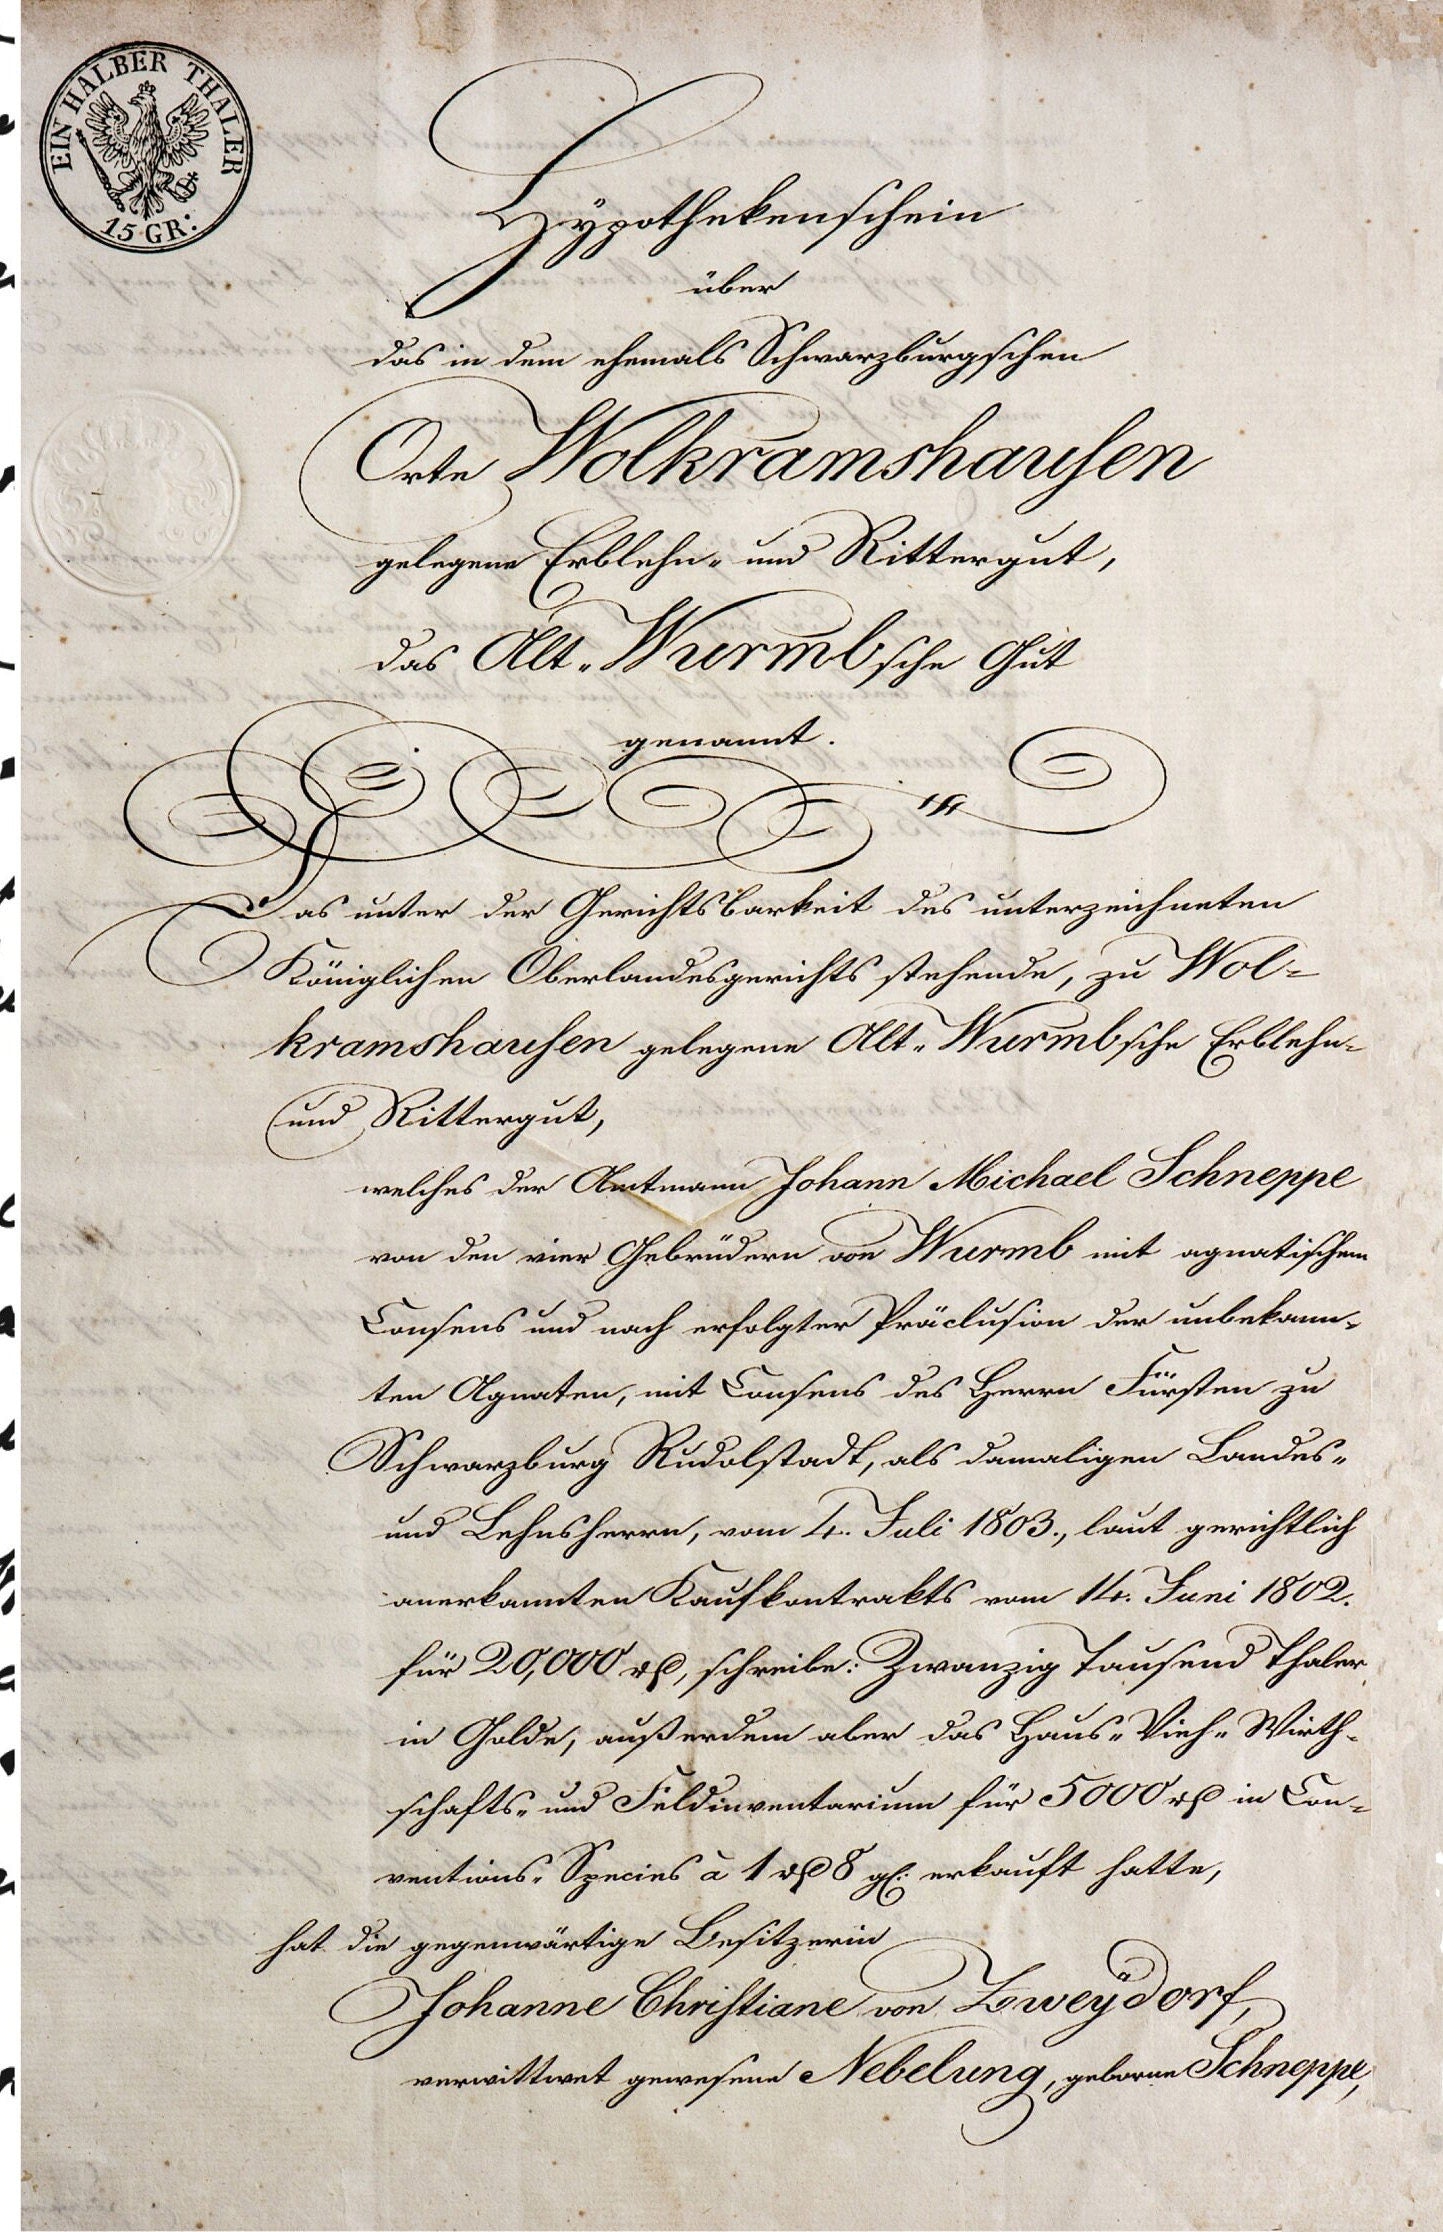 EIN HALBER THALER
15 GR:
Hypothekenschein
über
das in dem ehemals Schwarzburgschen
Orte Wolkramshausen
gelegene Erblehn- und Rittergut,
das Alt-Wurmbsche Gut
genannt.
Das unter der Gerichtsbarkeit des unterzeichneten
Königlichen Oberlandesgerichts stehende, zu Wol-
kramshausen gelegene Alt-Wurmbsche Erblehn-
und Rittergut,
welches der Amtmann Johann Michael Schneppe
von den vier Gebrüdern von Wurmb mit agnatischem
Consens und nach erfolgter Präclusion der unbekann-
ten Agnaten, mit Consens des Herrn Fürsten zu
Schwarzburg Rudolstadt, als damaligen Landes-
und Lehnsherrn, vom 4. Juli 1803., laut gerichtlich
anerkannten Kaufkontrakts vom 14. Juni 1802.
für 20,000 rß, schreibe: Zwanzig Tausend Thaler
in Golde, außerdem aber das Haus- Vieh- Wirth-
schafts- und Feldinventarium für 5000 rß in Con-
ventions- Species à 1 rß 8 gl: erkauft hatte,
hat die gegenwärtige Besitzerin
Johanne Christiane von Zweÿdorf,
verwittwet gewesene Nebelung, geborne Schneppe,